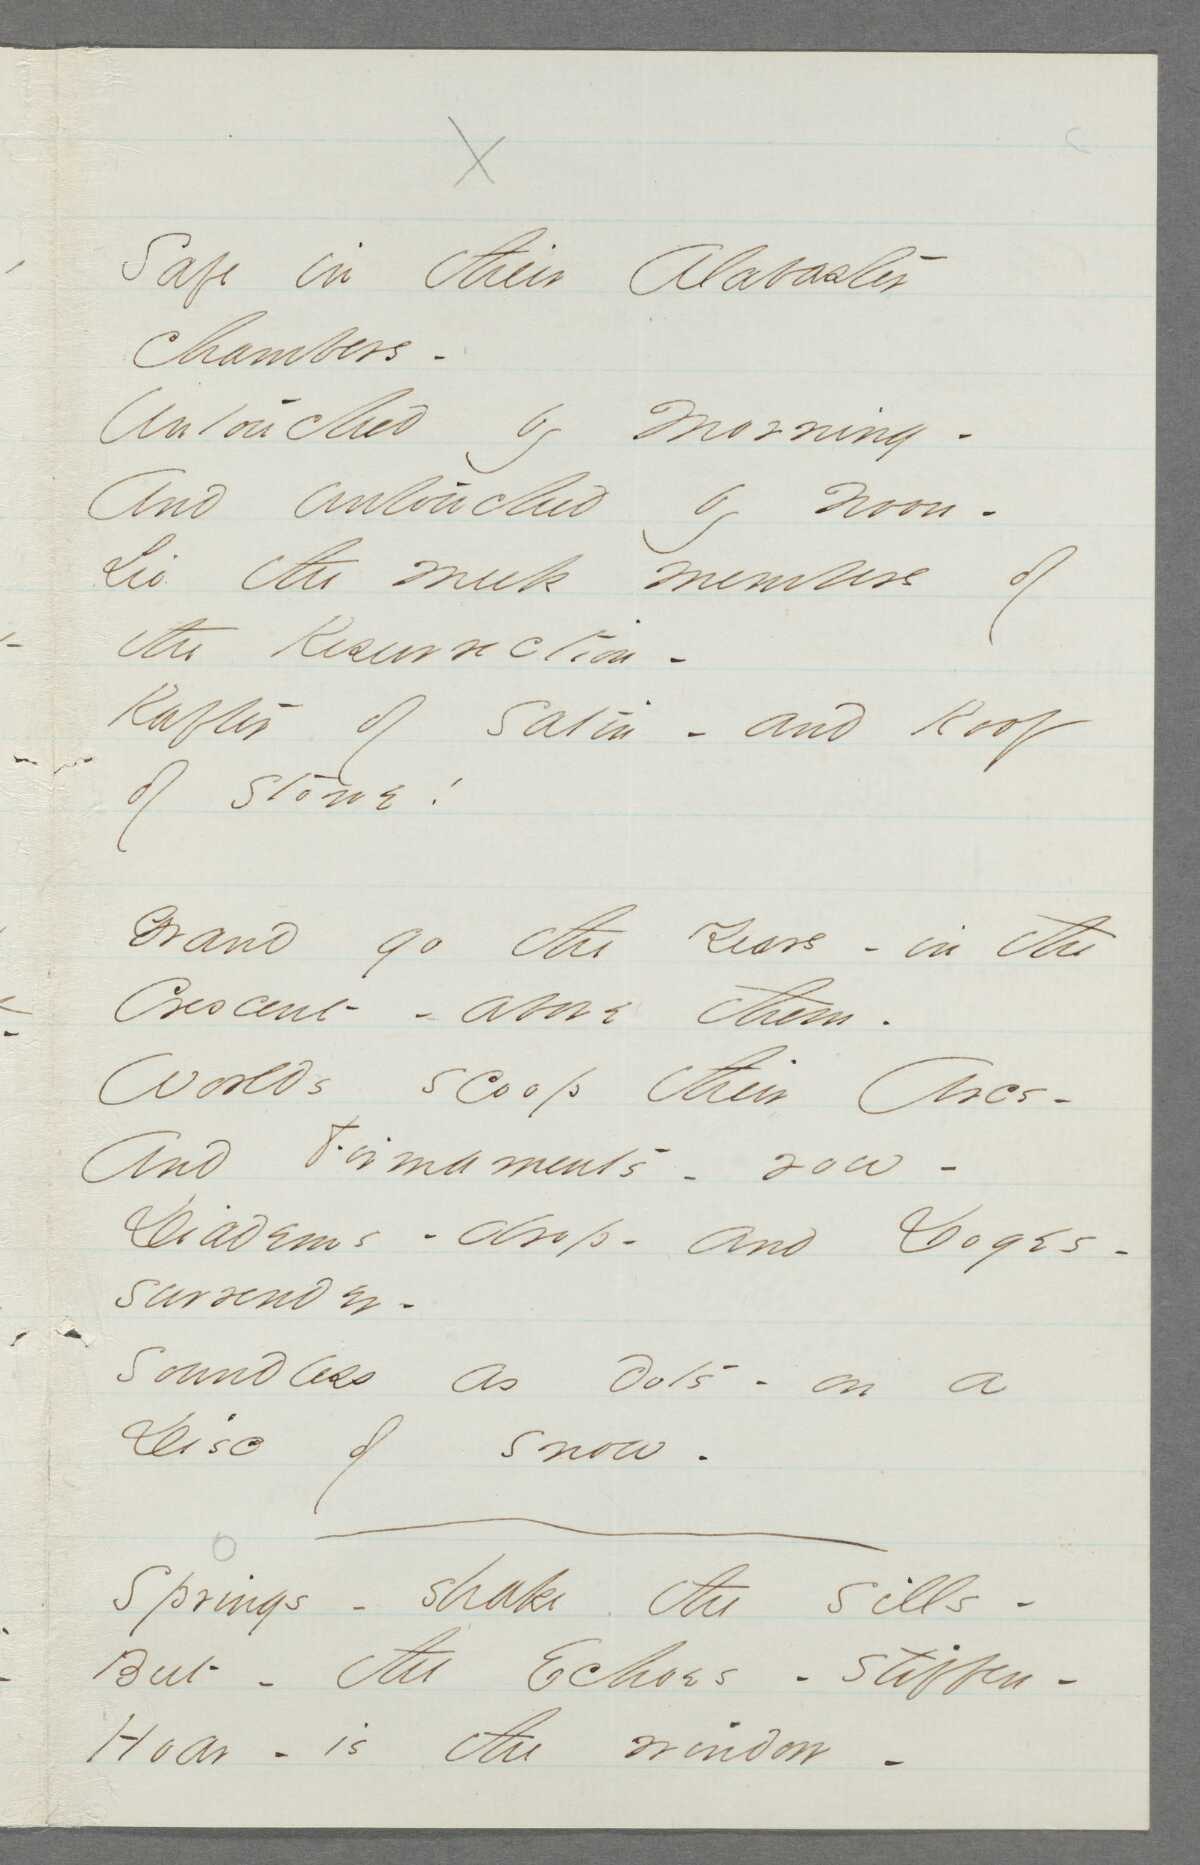 X
Safe in their Alabaster
Chambers -
Untouched by Morning -
And untouched by noon -
Lie the meek members of
the Resurrection -
Rafter of Satin - and Roof
of Stone!
Grand go the Years - in the
Crescent - above them -
Worlds scoop their Arcs -
And Firmaments - row -
Diadems - drop - and Doges -
surrender -
Soundless as dots - on a
Disc of snow -
Springs - shake the Sills -
But - the Echoes - stiffen -
Hoar - is the window -